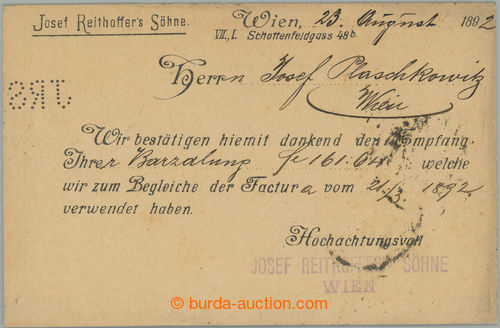 Josef Reithoffer's Söhne.
Wien, 23. August 1892
VII., I. Schottenfeldgass 48 b.
Herrn Josef Plaschkowitz
Wien
JRS
Wir bestätigen hiemit dankend den Empfang
Ihrer Barzalung fr 161.64 welche
wir zum Begleiche der Factura vom 21/3. 1892.
verwendet haben.
Hochachtungsvoll
JOSEF REITHOFFER'S SÖHNE
WIEN
© burda-auction.com